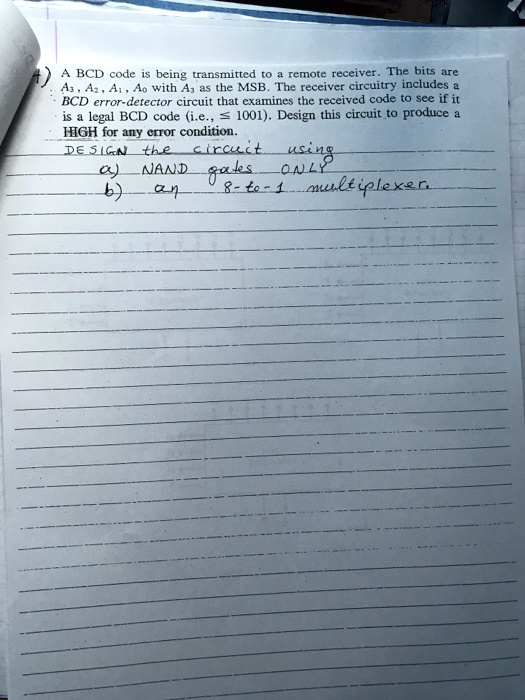 4) A BCD code is being transmitted to a remote receiver. The bits are
A3, A2, A1, A0 with A3 as the MSB. The receiver circuitry includes a
BCD error-detector circuit that examines the received code to see if it
is a legal BCD code (i.e., ≤ 1001). Design this circuit to produce a
HIGH for any error condition.
DESIGN the circuit using
a) NAND gates ONLY
b) an 8-to-1 multiplexer.